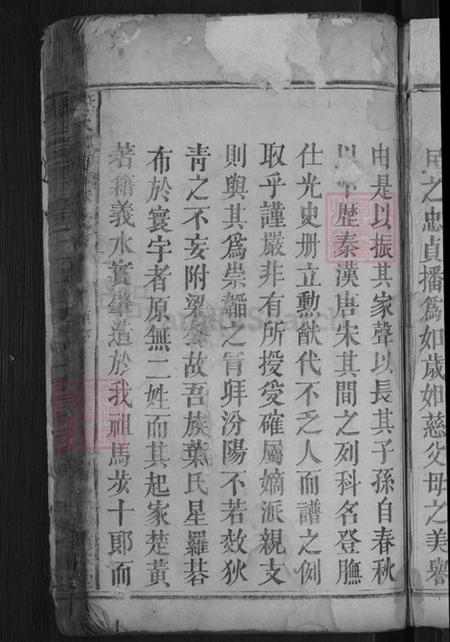 民之忠貞播為如歲如慈父母之美譽
由是以振其家聲以長其子孫自春秋
以下歷秦漢唐宋其間之列科名登膴
仕光史册立勳猷代不乏人而譜之例
取乎謹嚴非有所授受確屬嫡派親支
則與其為崇韜之冒拜汾陽不若效狄
青之不妄附梁公故吾族葉氏星羅碁
布於寰宇者原無二姓而其起家楚黄
著籍義水實肇造於我祖馬茨十郎而